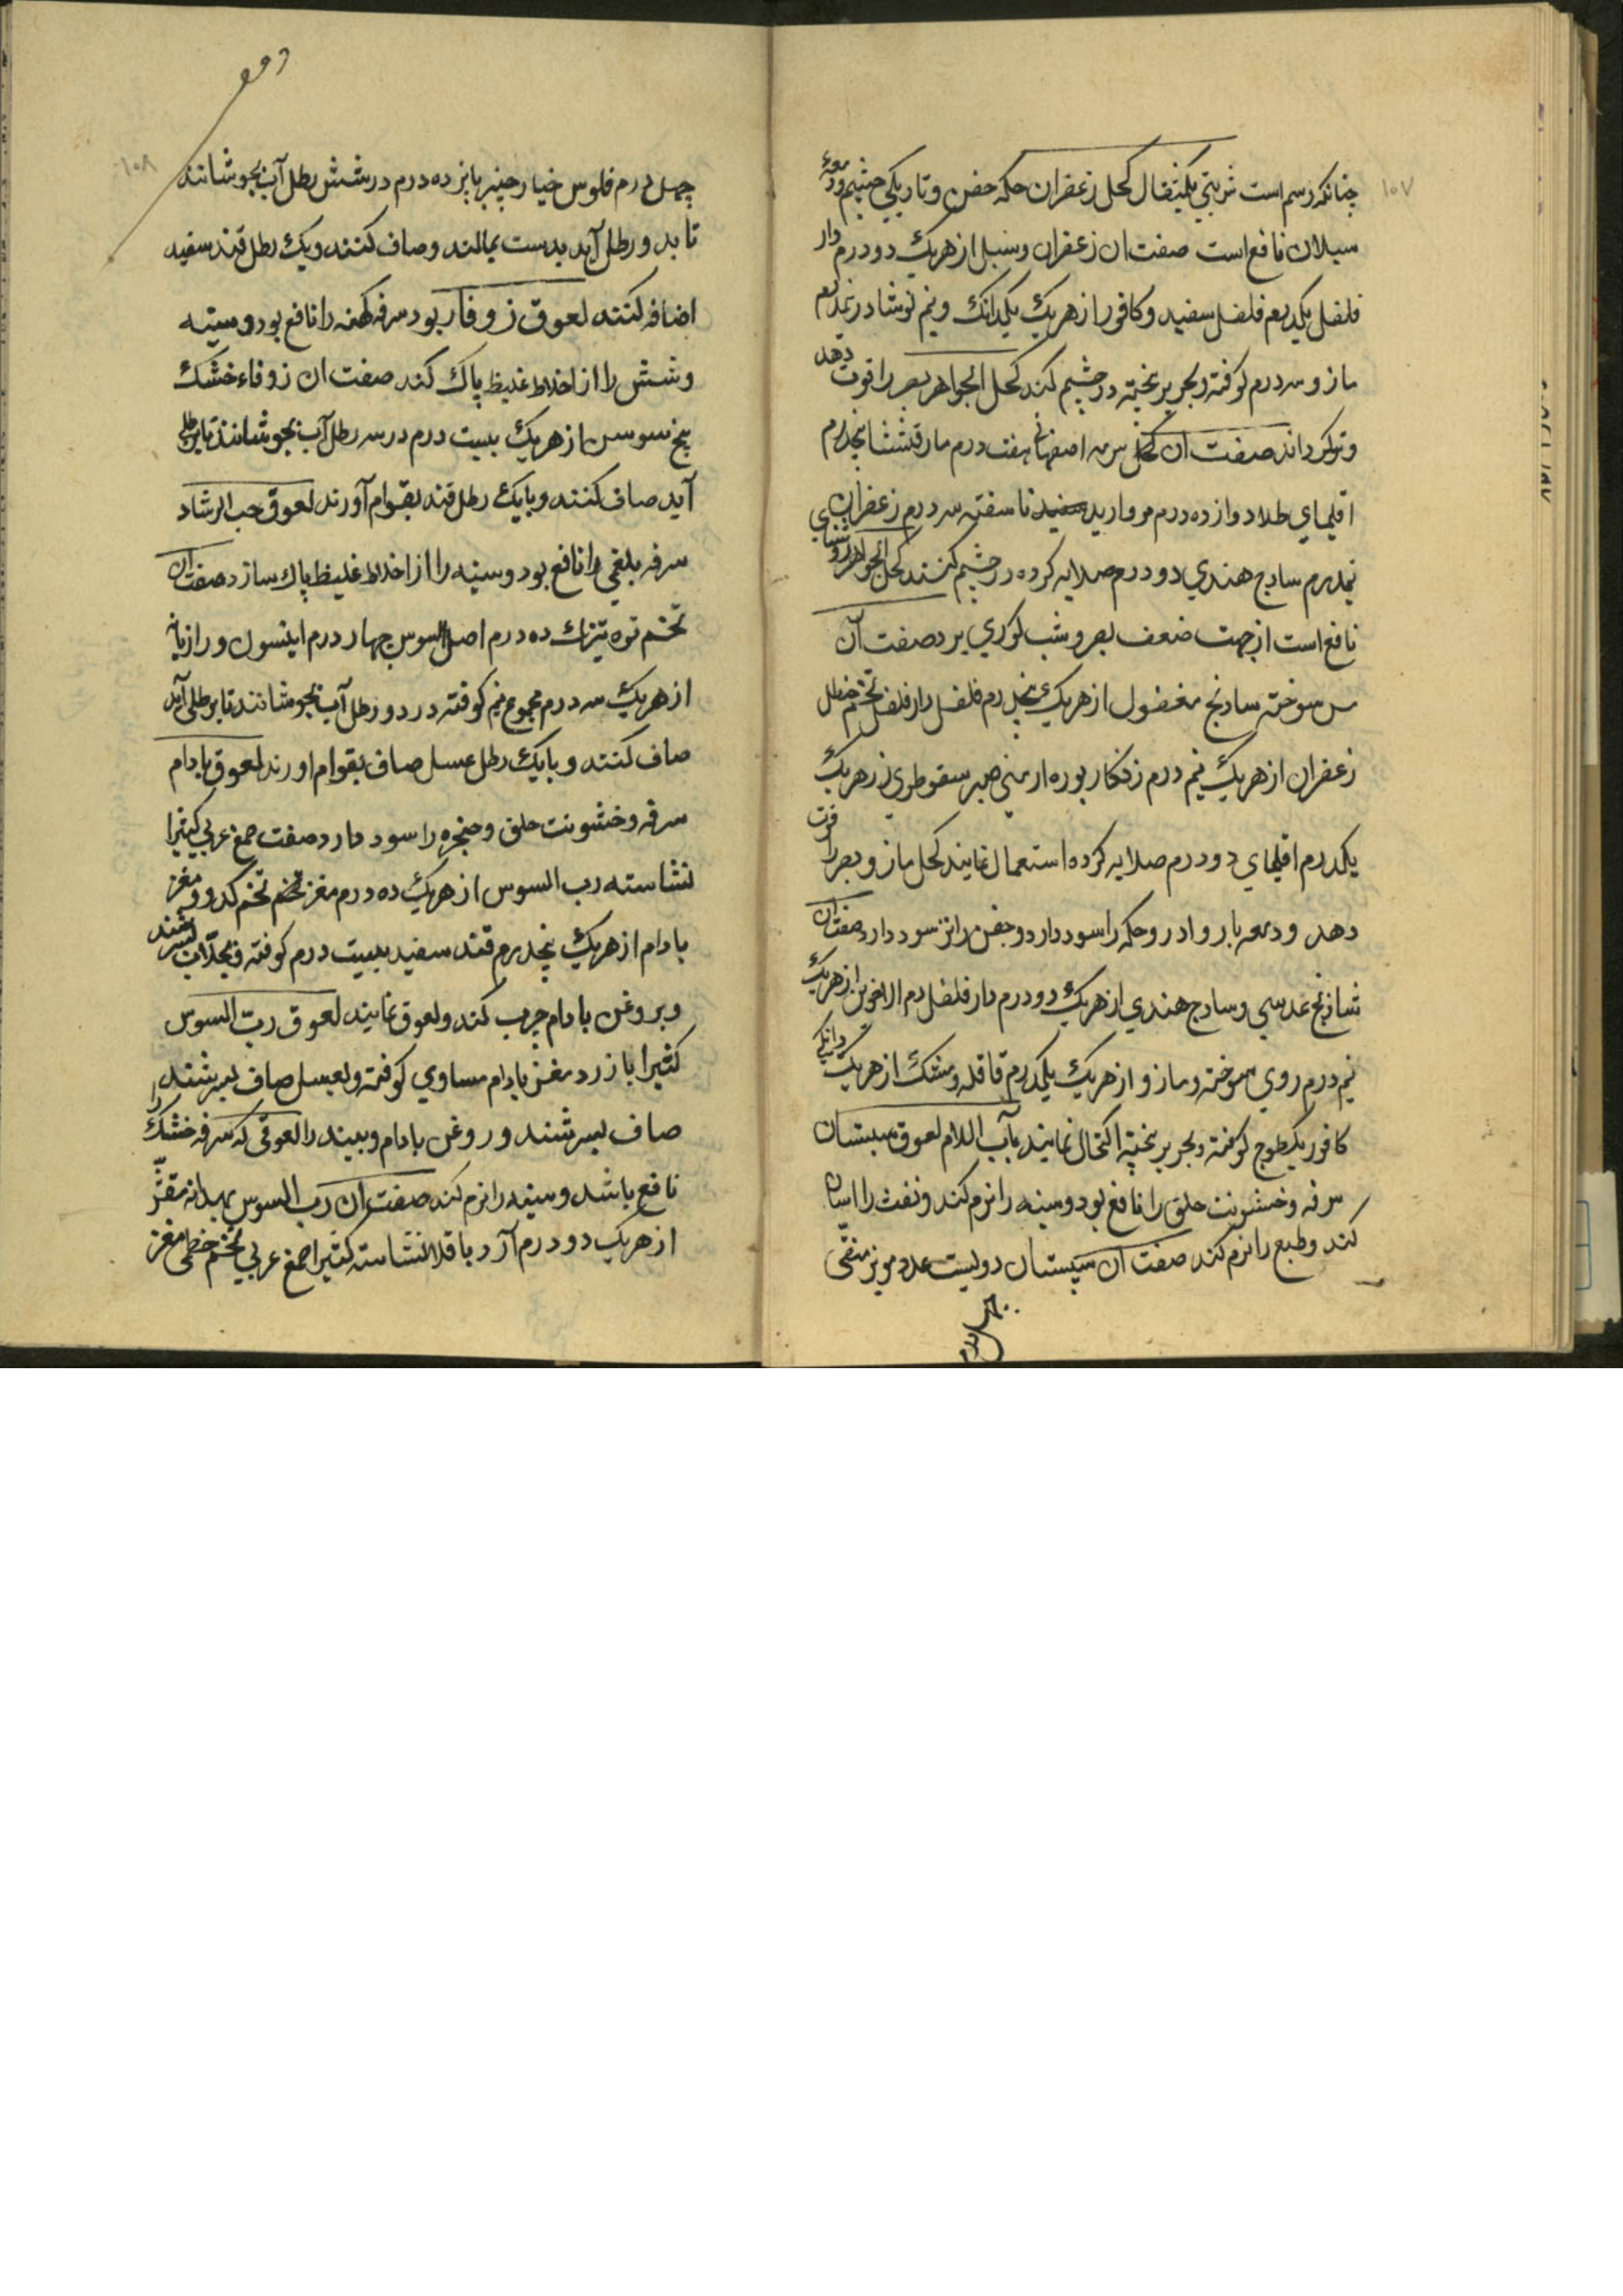 ۱۰۷
چنانکه رسم است شربتی یکمثقال کحل زعفران حکه جفن و تاریکی چشم و دمعه
سیلان نافع است صفت ان زعفران و سنبل از هریک دو درم دار
فلفل یکدرم فلفل سفید و کافور از هریک یکدانک و نیم نوشادر نیمدرم
مازو سه درم کوفته و بحریر بیخته در چشم کند کحل الجواهر بصر را قوت دهد
و تیز کرداند صفت ان کحل سرمه اصفهانی هفت درم مارقشیشا پنجدرم
اقلیمای طلا دوازده درم مروارید سفید ناسفته سه درم زعفران
نیمدرم سادج هندی دو درم صلایه کرده در چشم کنند کحل الجواهر روشنای
نافع است از جهت ضعف بصر و شب کوری برد صفت آن
مس سوخته سادنج مغسول از هریک پنجدرم فلفل دارفلفل تخم حنظل
زعفران از هریک نیم درم زنکار بوره ارمنی صبر سقوطری از هریک
یکدرم اقلیمای دو درم صلایه کرده استعمال نمایند کحل مازو بصر را قوت
دهد و دمعه باز دارد و حکه را سود دارد و جفن را نیز سود دارد صفت ان
شادنج عدسی و سادج هندی از هریک دو درم دارفلفل دم الاخوین از هریک
نیم درم روی سوخته و مازو از هریک یکدرم قاقله و مشک از هریک دانکی
کافور یکطسوج کوفته و بحریر بیخته اکتحال نمایند باب اللام لعوق سپستان
سرفه و خشونت حلق را نافع بود و سینه را نرم کند و نفث را اسان
کند و طبع را نرم کند صفت ان سپستان دویست عدد مویز منقی
چهل درم
۱۰۸
چهل درم فلوس خیارچنبر پانزده درم در شش رطل آب بجوشانند
تا بدو رطل آید بدست بمالند و صاف کنند و یک رطل قند سفید
اضافه کنند لعوق زوفا ربو و سرفه کهنه را نافع بود و سینه
و شش را از اخلاط غلیظ پاک کند صفت ان زوفاء خشک
بیخ سوسن از هریک بیست درم در سه رطل آب بجوشانند تا برطلی
آید صاف کنند و با یک رطل قند بقوام آورند لعوق حب الرشاد
سرفه بلغمی را نافع بود و سینه را از اخلاط غلیظ پاک سازد صفت ان
تخم تره تیزک ده درم اصل السوس چهار درم انیسون و رازیانه
از هریک سه درم مجموع نیم کوفته در دو رطل آب بجوشانند تا برطلی آید
صاف کنند و با یک رطل عسل صاف بقوام اورند لعوق بادام
سرفه و خشونت حلق و حنجره را سود دارد صفت صمغ عربی کتیرا
نشاسته رب السوس از هریک ده درم مغز تخم کدو و مغز
بادام از هریک پنجدرم قند سفید بیست درم کوفته و بجلاب بسرشند
و بروغن بادام چرب کند و لعوق نمایند لعوق رب السوس
کثیرا بازرد مغز بادام مساوی کوفته و بعسل صاف بسرشند
صاف بسرشند و روغن بادام لعوقی که سرفه خشک را
نافع باشد و سینه را نرم کند صفت ان رب السوس بهدانه مقشر
از هریک دو درم آرد باقلا نشاسته کتیرا صمغ عربی تخم خطمی مغز